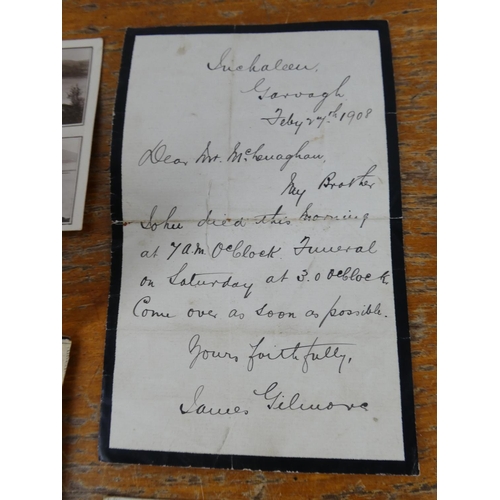 Inchaleen,
Garvagh
Feby 27th 1908
Dear Mr. McLenaghan,
My Brother
John died this morning
at 7 am O'Clock. Funeral
on Saturday at 3.0 O'Clock
Come over as soon as possible.
Yours faithfully,
James Gilmore